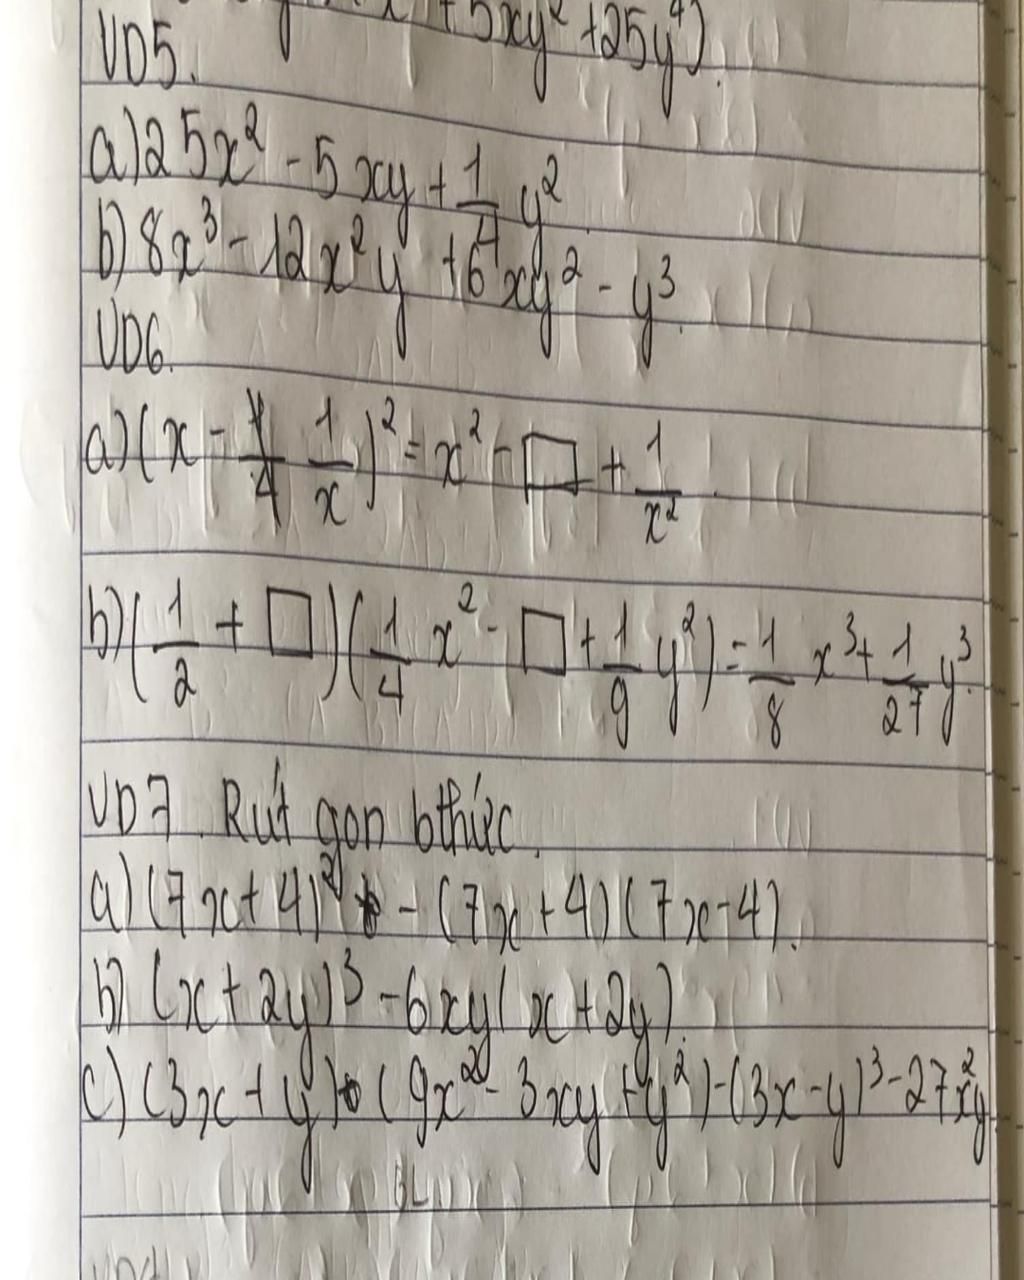 +5xy² +25y⁴).
VD5.
a) 25x² - 5xy + 1/4 y²
b) 8x³ - 12x²y + 6xy² - y³.
VD6.
a) (x - 1/x)² = x² - □ + 1/x².
b) (1/2 + □)(1/4 x² - □ + 1/9 y²) = 1/8 x³ + 1/27 y³.
VD7. Rút gọn bthức.
a) (7x+4)² - (7x+4)(7x-4).
b) (x+2y)³ - 6xy(x+2y).
c) (3x+y)(9x² - 3xy + y²) - (3x-y)³ - 27x²y